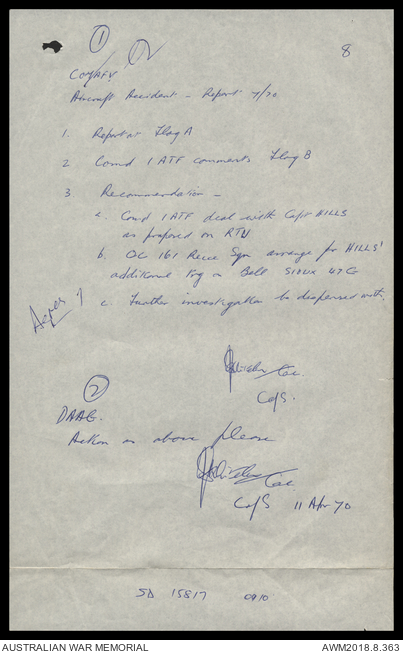 ① 8
Com/AFV
Aircraft Accident - Report 7/70
1. Report at Flag A
2 Comd 1 ATF comments Flag B
3 Recommendation -
a. Comd 1 ATF deal with Capt HILLS
as proposed on RTU
b. OC 161 Recce Sqn arrange for HILLS'
additional trg on Bell SIOUX 47G
c. Further investigation be dispensed with.
Agree
Col.
CofS.
②
DAAG.
Action as above please
Col
CofS 11 Apr 70
SD 15817 0910
AUSTRALIAN WAR MEMORIAL AWM2018.8.363